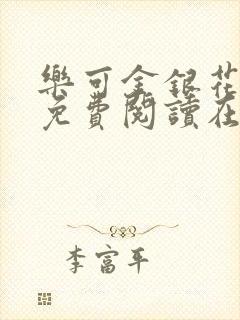 樂可金銀花
免費閱讀在
李富平